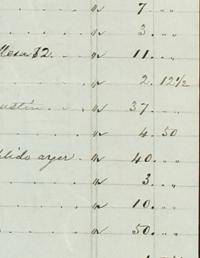 " 7 . "
" 3 . "
Mesa 82. " 11 . "
" 2. 12½
ustin . . " 37 . "
" 4. 50
dido ayer . " 40 . "
" 3 . "
" 10 . "
" 50 . "